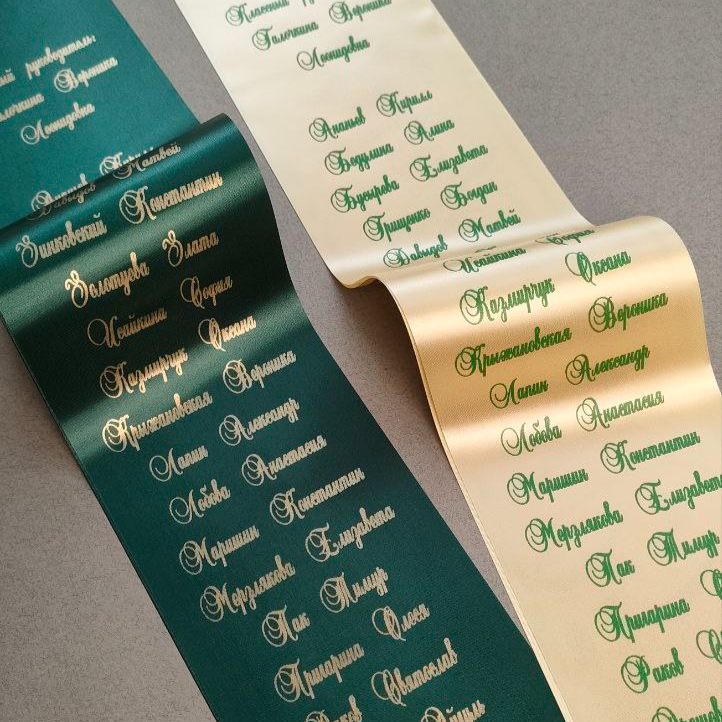 руководитель:
Вероника
Леонидовна
Давыдов Матвей
Зинковский Константин
Золотуева Злата
Исайкина София
Казмирчук Оксана
Крыжановская Вероника
Лапин Александр
Лобова Анастасия
Маришин Константин
Мерзлякова Елизавета
Пак Тимур
Пригарина Олеся
Святослав
Галочкина Вероника
Леонидовна
Ананьев Кирилл
Бодулина Алина
Бусырева Елизавета
Грищенко Богдан
Давыдов Матвей
Исайкина София
Казмирчук Оксана
Крыжановская Вероника
Лапин Александр
Лобова Анастасия
Маришин Константин
Мерзлякова Елизавета
Пак Тимур
Пригарина
Раков